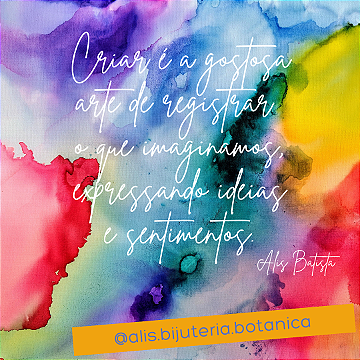 Criar é a gostosa
arte de registrar
o que imaginamos,
expressando ideias
e sentimentos.
Alis Batista
@alis.bijuteria.botanica